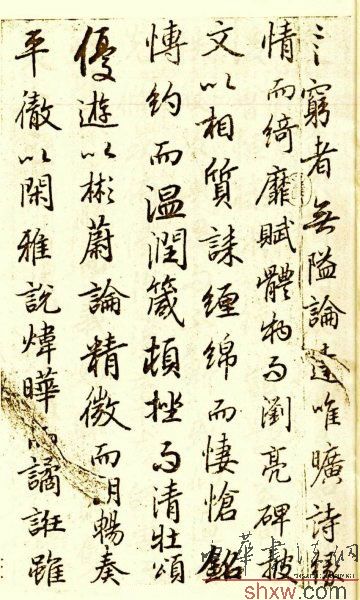 言窮者無隘論達唯曠詩緣
情而綺靡賦體物而瀏亮碑披
文以相質誄纏綿而悽愴銘
博約而温潤箴頓挫而清壯頌
優遊以彬蔚論精微而朗暢奏
平徹以閑雅說煒曄而譎誑雖
中華書法網
shxw.com